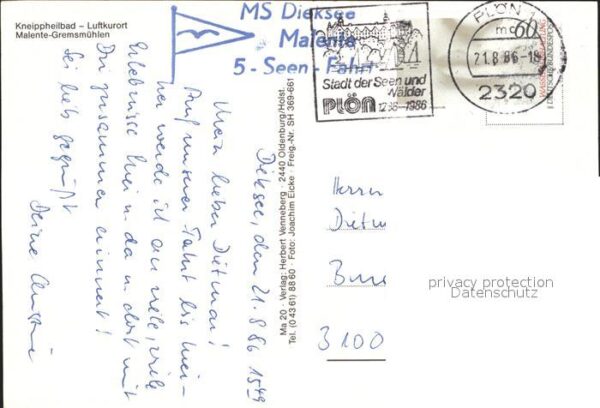 Kneippheilbad – Luftkurort
Malente-Gremsmühlen
MS Dieksee
Malente
5-Seen-Fahrt
Stadt der Seen und
Wälder
PLÖN 1236-1986
PLÖN
mc
21.8.86-18
2320
60
DEUTSCHE BUNDESPOST
Dieksee, den 21.8.86 1549
Mein lieber Dietmar!
Auf unserer Fahrt bis hier-
her werde ich an viele, viele
Erlebnisse hier u. da u. dort mit
Dir zusammen erinnert!
Sei lieb gegrüßt
Deine
Ma 20 · Verlag: Herbert Venneberg · 2440 Oldenburg/Holst.
Tel. (0 43 61) 88 60 · Foto: Joachim Eicke · Freig.-Nr. SH 369-661
Herrn
Dietm
3100
privacy protection
Datenschutz